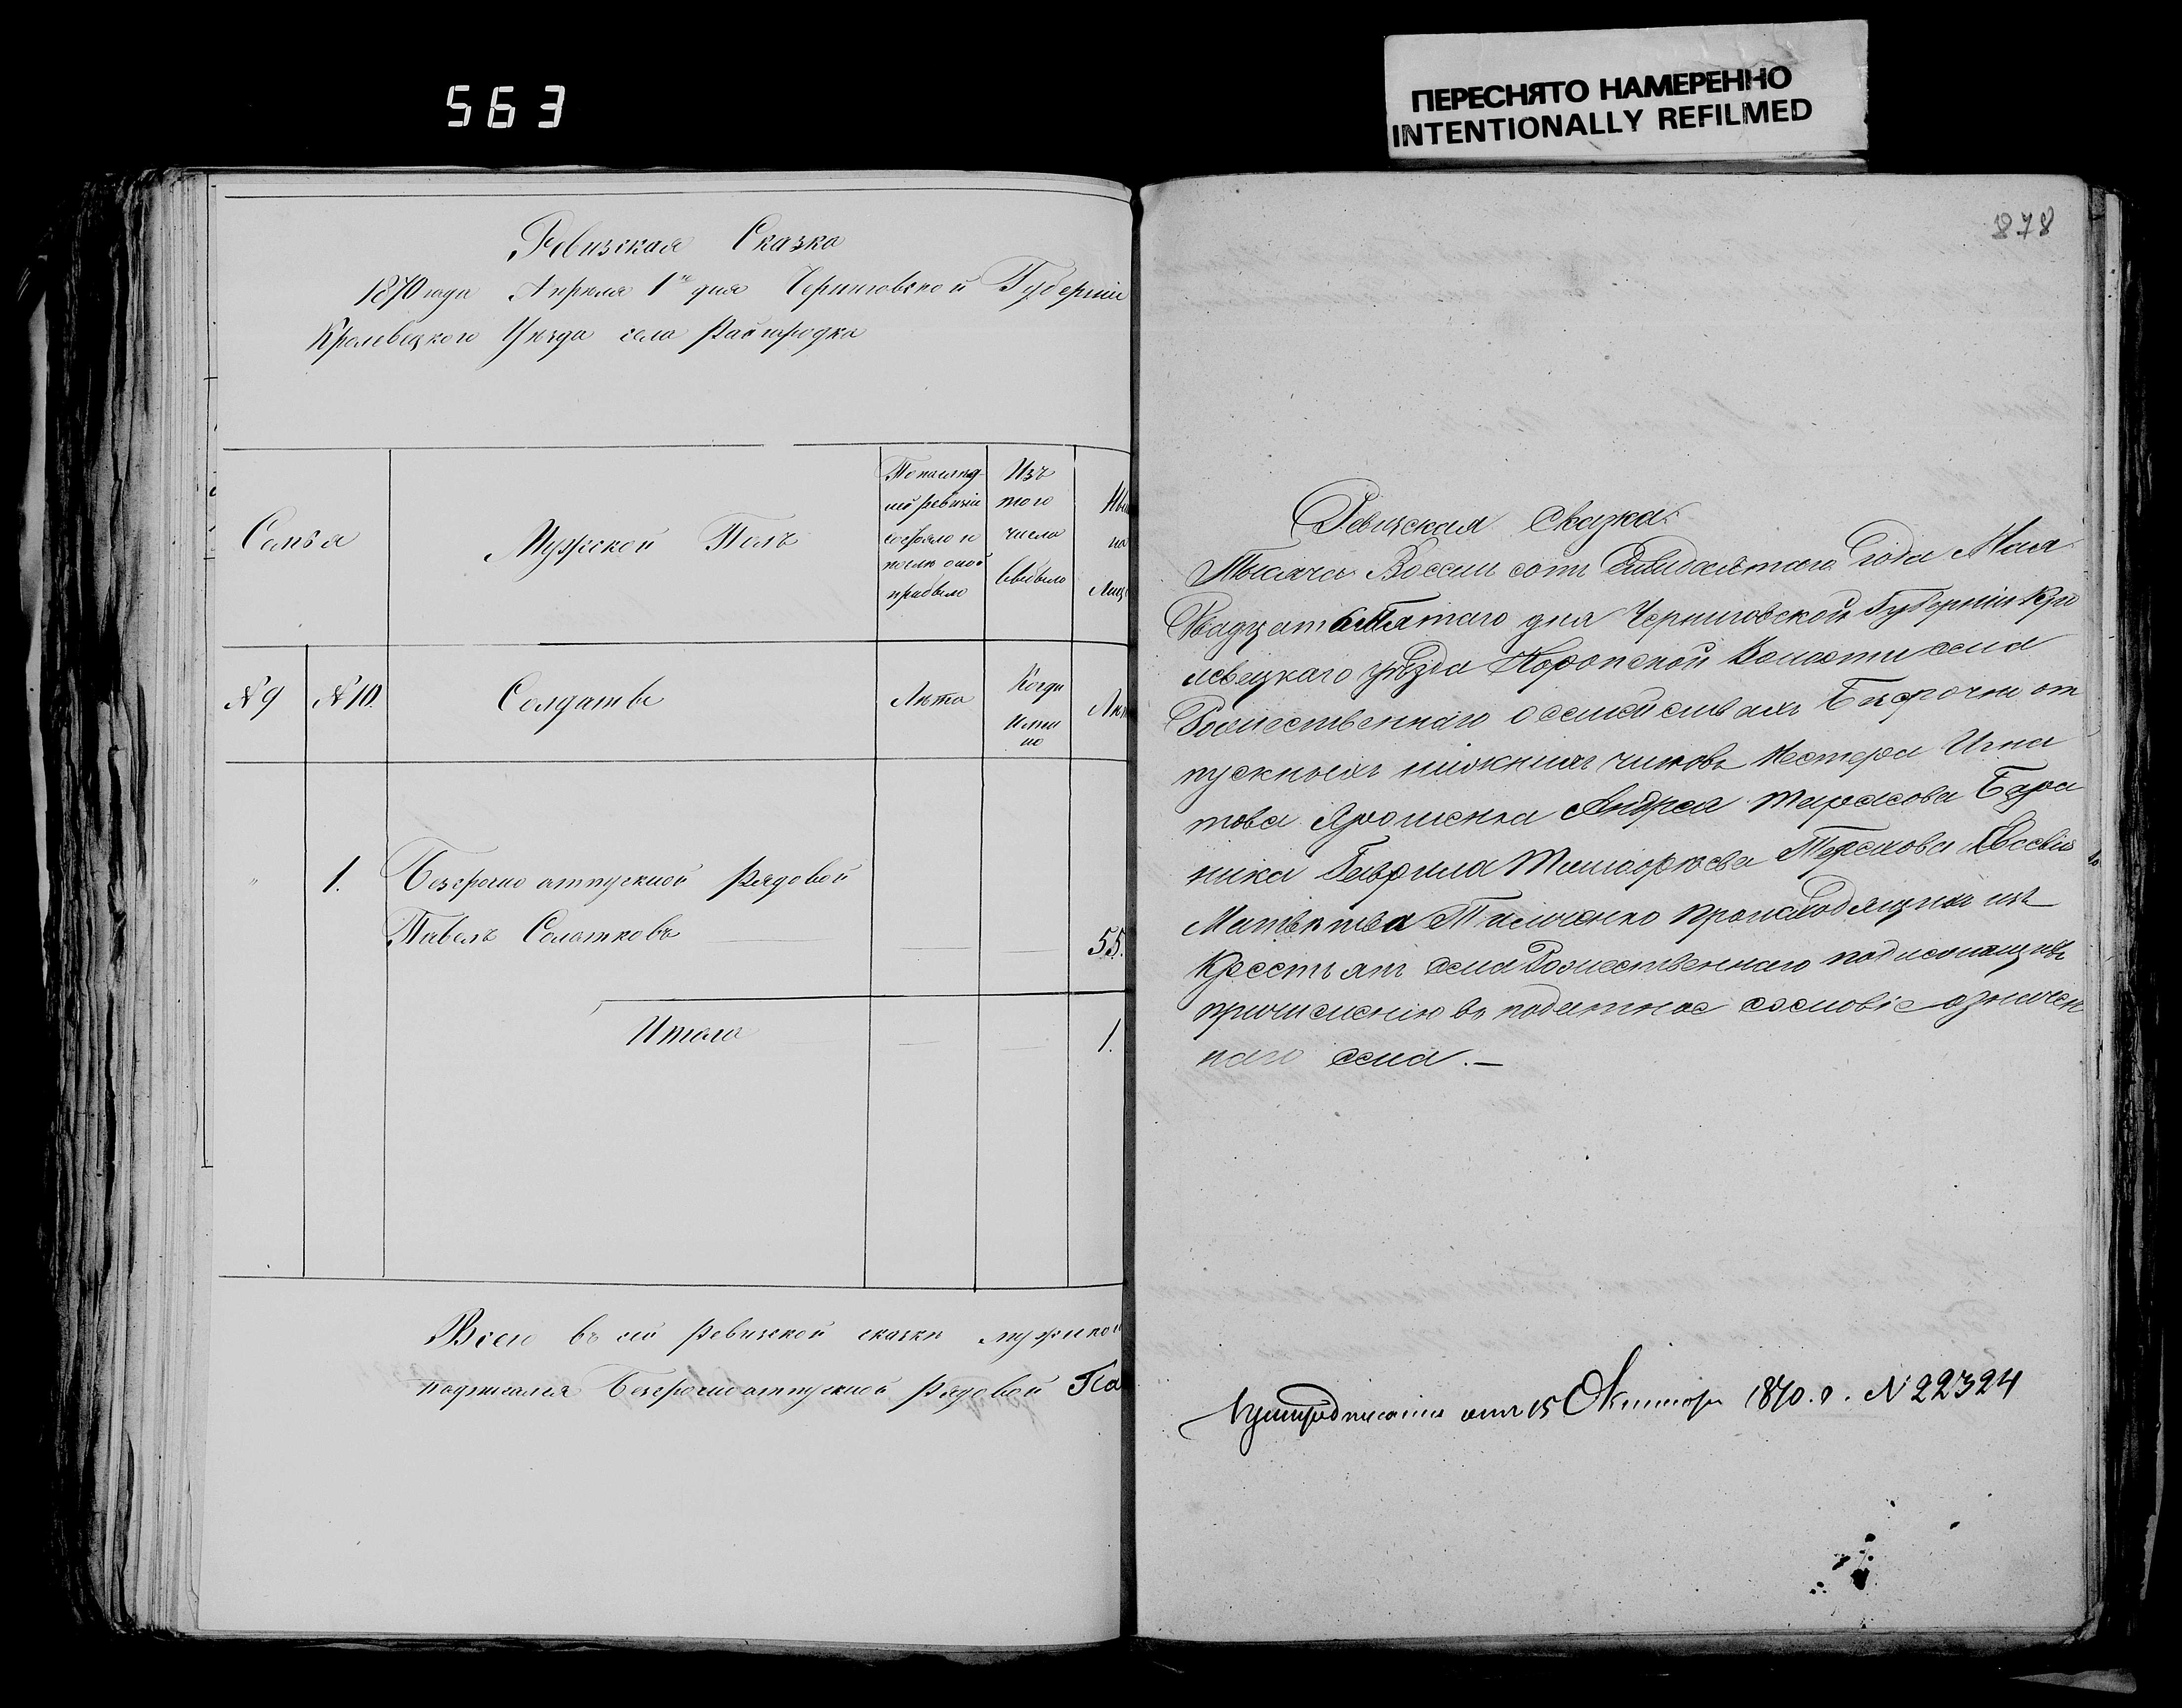 563
ПЕРЕСНЯТО НАМЕРЕННО
INTENTIONALLY REFILMED
Ревизская Сказка
1870 года Апреля 1го дня Черниговской Губерніи
Кролевецкого Уѣзда села Райгородка
Семья
Мужской Полъ
По послѣд
ней ревизіи
состояло и
послѣ оной
прибыло
Изъ
того
числа
выбыло
№ 9
№ 10.
Солдаты
Лѣта
Когда
именно
"
1.
Безсрочно отпускной рядовой
Павелъ Солошковъ
55.
Итого
1.
Всего въ сей ревизской сказки мужскои
подписался Безсрочно отпускной рядовой Па
878
Ревизская Сказка
Тысяча Восемь сотъ Семидесятаго Года Мая
Двадцать Пятаго дня Черниговской Губерніи Кро
левецкаго уѣзда Коропской Волости села
Рождественнаго о семействахъ Безсрочно от
пускныхъ нижнихъ чиновъ Нестера Игна
това Ярошенка Андрея Тарасова
Гаврила
Тимченко происходящихъ изъ
Крестьянъ села Рождественнаго подлежащихъ
причисленію въ податное сословіе означен
наго села. —
Предписанія отъ 15 Октября 1870. г. № 22324